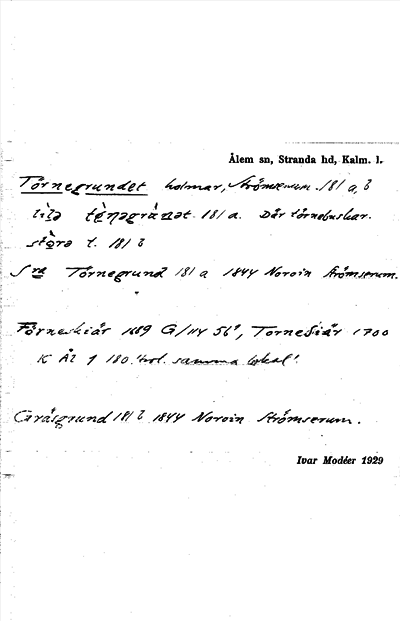 Ålem sn, Stranda hd, Kalm. l.
Törnegrundet holmar, Strömserum. 181 a, b
lilə 181 a. Där törnebuskar.
storə t. 181 b
Sre Törnegrund 181 a 1844 Noroin Strömserum.
Förneskiär 1689 G/114 56, Torneskiär 1700
K Ål 9 180. trol. samma lokal.
Gräsgrund 181 b 1844 Noroin Strömserum.
Ivar Modéer 1929